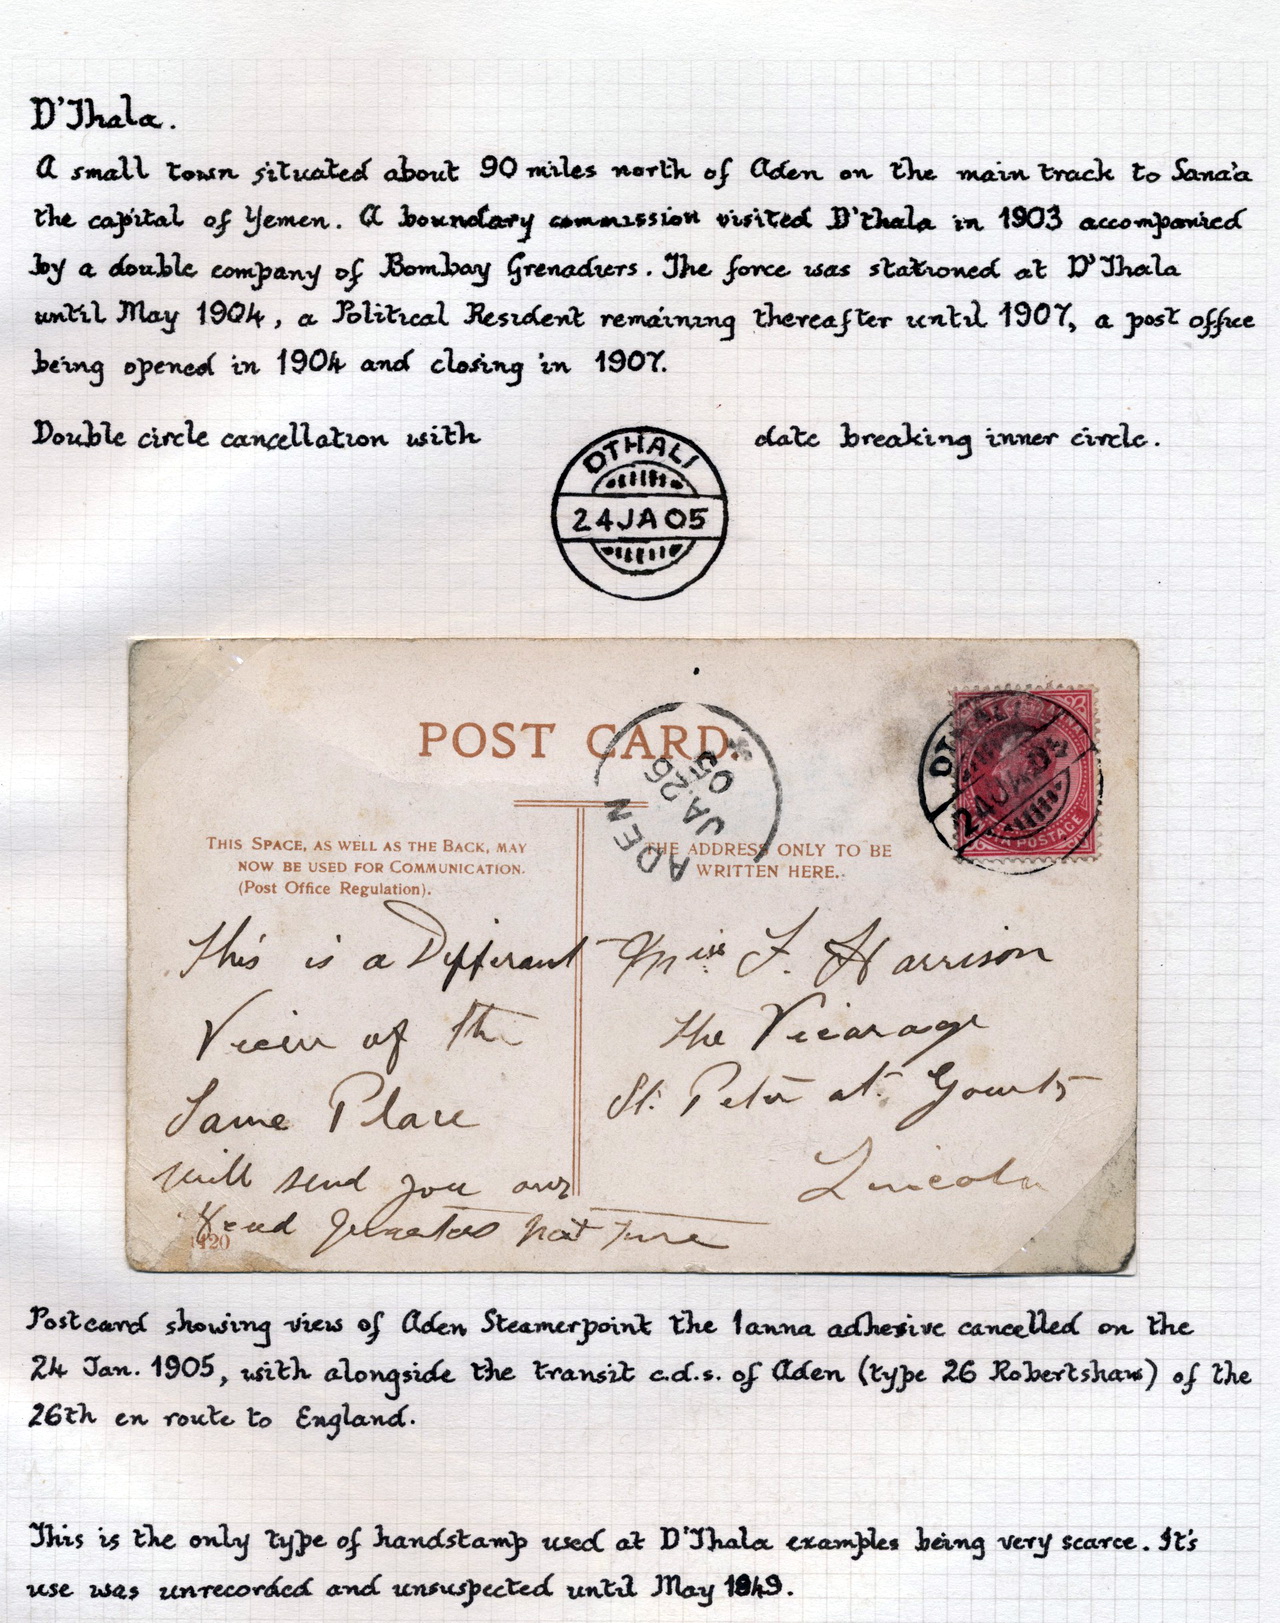 D'Thala.
A small town situated about 90 miles north of Aden on the main track to Sana'a
the capital of Yemen. A boundary commission visited D'thala in 1903 accompanied
by a double company of Bombay Grenadiers. The force was stationed at D'Thala
until May 1904, a Political Resident remaining thereafter until 1907, a post office
being opened in 1904 and closing in 1907.
Double circle cancellation with date breaking inner circle.
DTHALI
24JA05
POST CARD.
ADEN
JA.26
05
DTHALI
24JA05
POSTAGE
THIS SPACE, AS WELL AS THE BACK, MAY
NOW BE USED FOR COMMUNICATION.
(Post Office Regulation).
THE ADDRESS ONLY TO BE
WRITTEN HERE.
This is a Different
View of the
Same Place
will send you our
Head Quarters next time
1420
Miss F. Harrison
The Vicarage
St. Peter at Gowts
Lincoln
Postcard showing view of Aden Steamerpoint the 1anna adhesive cancelled on the
24 Jan. 1905, with alongside the transit c.d.s. of Aden (type 26 Robertshaw) of the
26th en route to England.
This is the only type of handstamp used at D'Thala examples being very scarce. It's
use was unrecorded and unsuspected until May 1949.